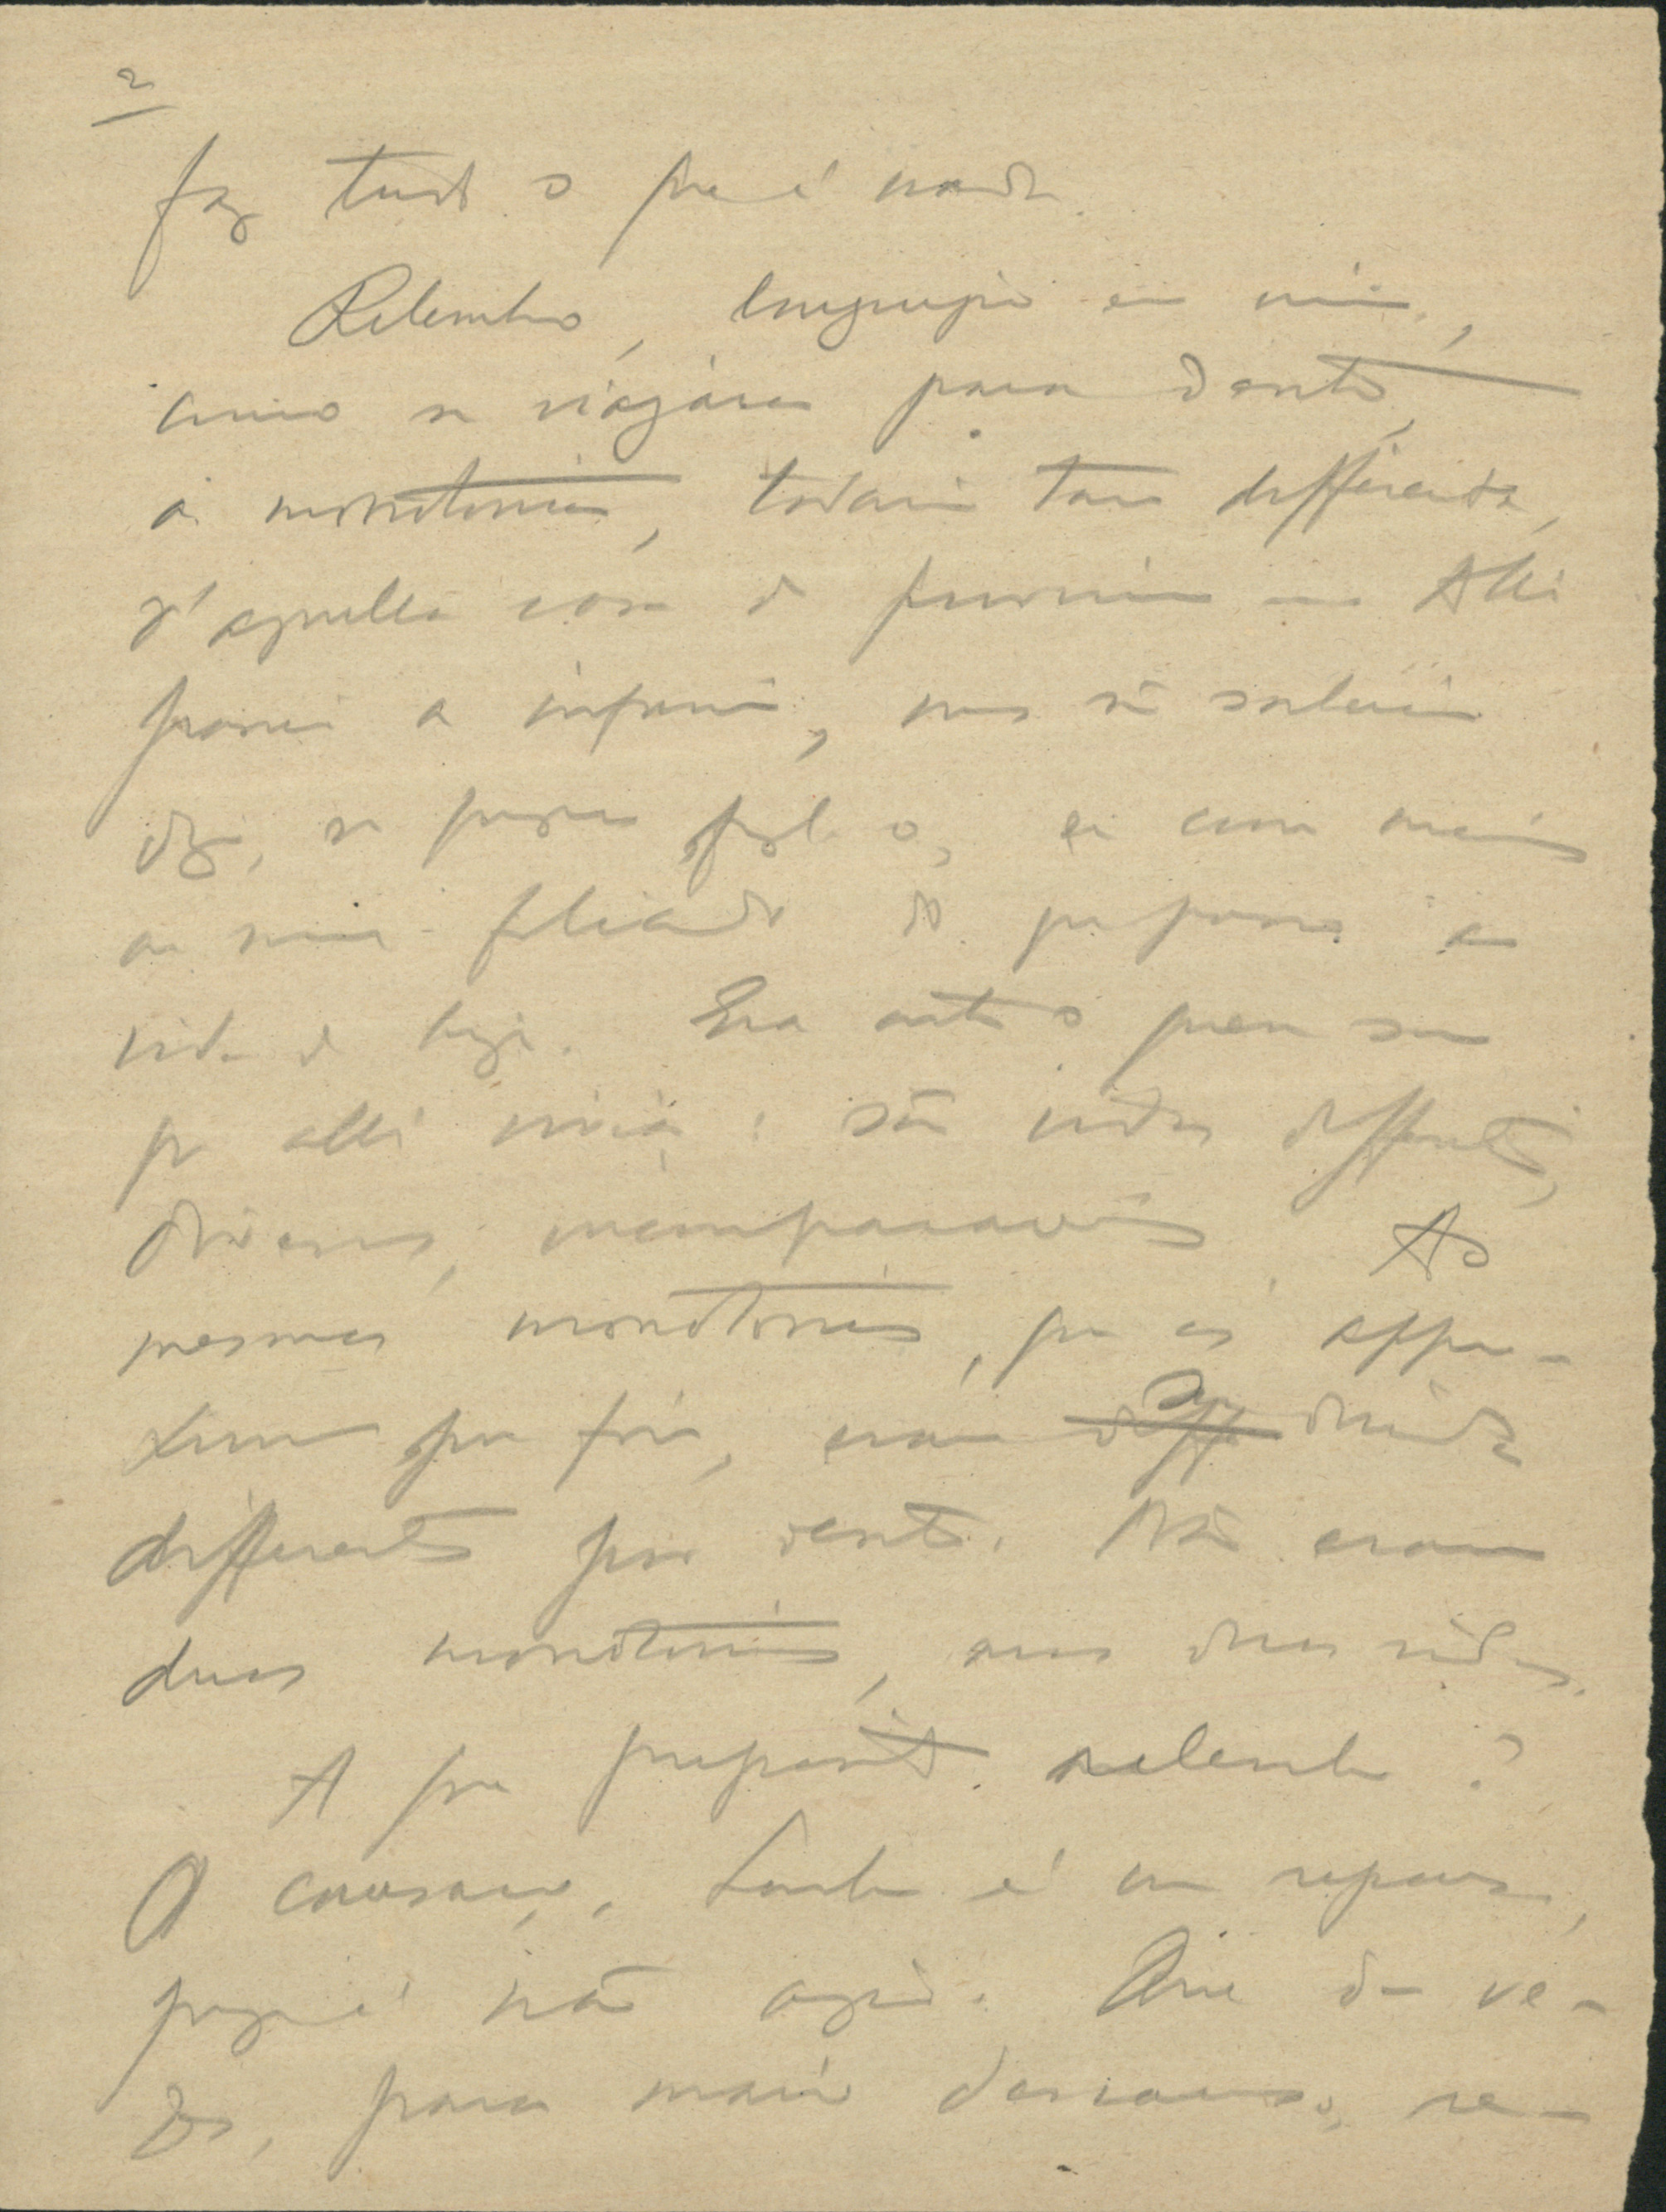 2
faz tudo o que é nada.
Relembro, longinquo em mim,
como se viajára para dentro,
a monotonia, todavia tam differente,
d'aquella casa de provincia... Alli
passei a infancia, mas não saberia
dizer, se quizesse fazel-o, se com mais
ou menos felicidade do que passo a
vida de hoje. Era outro o quem sou
que alli vivia: são vidas differentes,
diversas, incomparaveis. As
mesmas monotonias, que as appro-
ximam por fóra, eram sem duvida
differentes por dentro. Não eram
duas monotonias, mas duas vidas.
A que proposito relembro?
O cansaço. Lembrar é um repouso,
porque é não agir. Que de ve-
zes, para maior descanso, re-